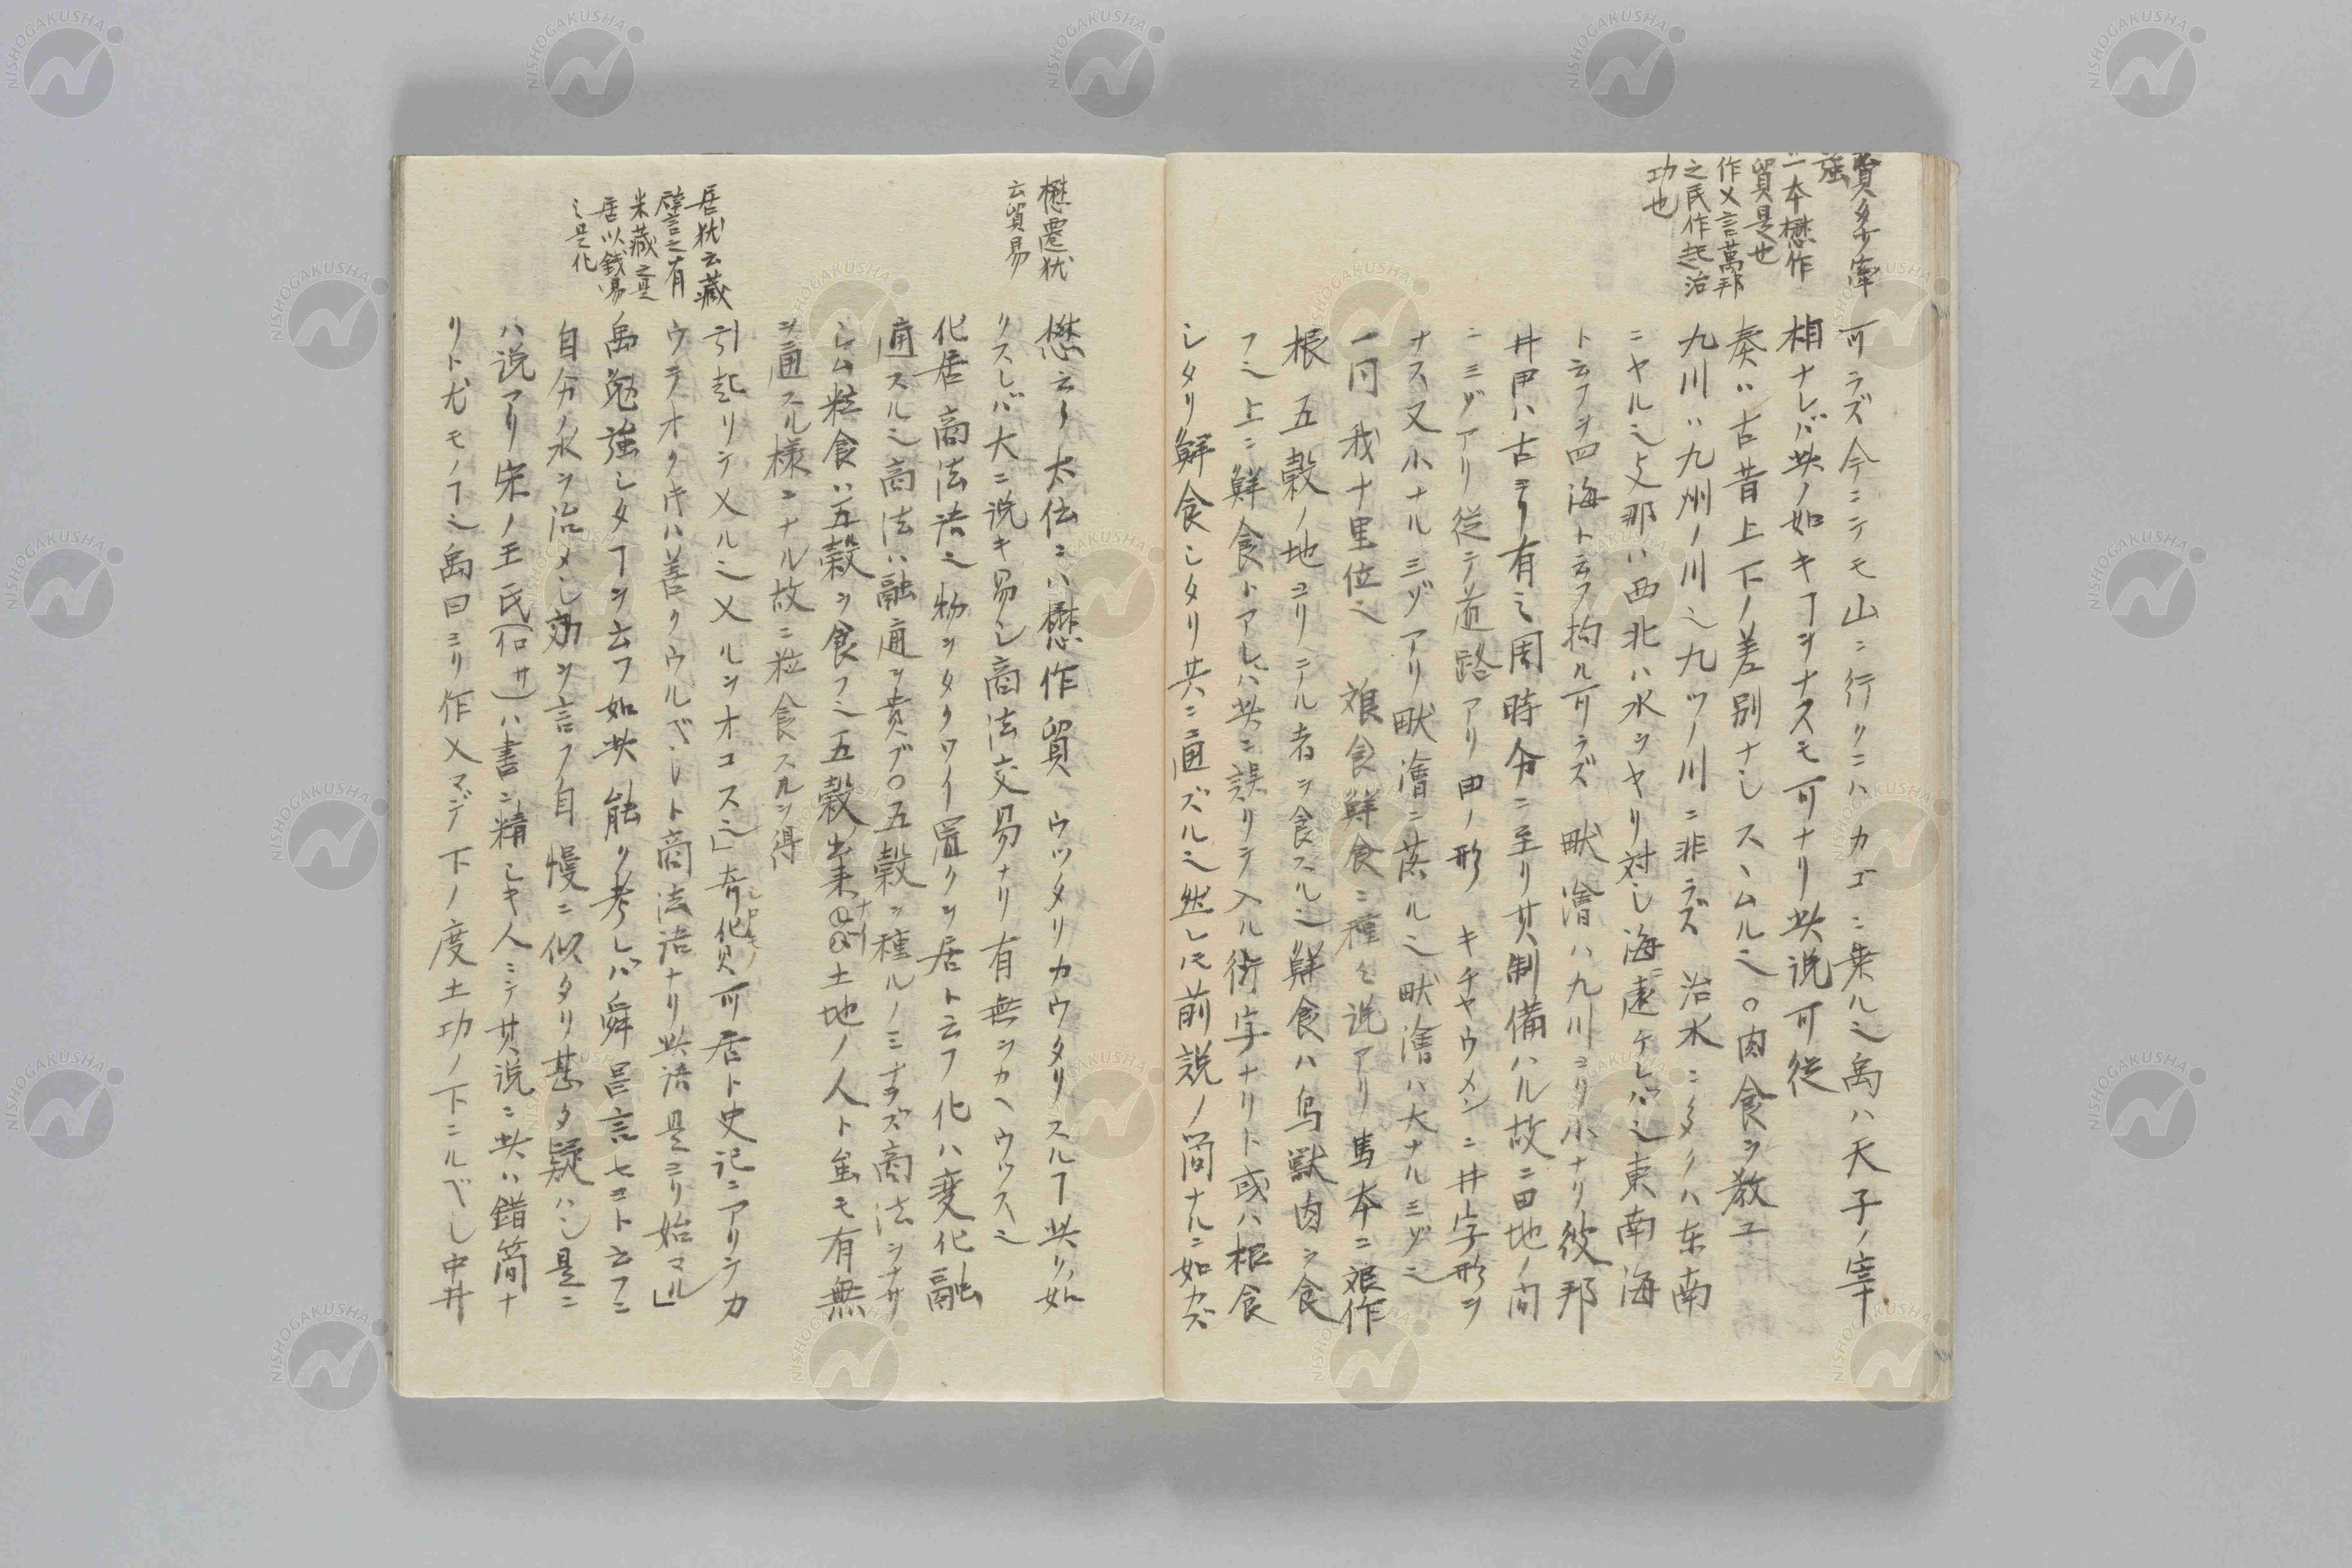 可ラズ今ニテモ山ニ行クニハカゴニ乗ル也禹ハ天子ノ宰
相ナレバ此ノ如キヿヲナスモ可ナリ此説可從
奏ハ古昔上下ノ差別ナシスヽムル也○肉食ヲ教ユ
九川ハ九州ノ川也九ツノ川ニ非ラズ 治水ニタクハ东南
ニヤル也支那ハ西北ハ水ヲヤリ対シ海遠ケレバ也東南海
ト云フヲ四海ト云フ拘ル可ラズ 畎澮ハ九川ヨリ小ナリ彼邦
井田ハ古ヨリ有之周時分ニ至リ其制備ハル故ニ田地ノ间
ニミゾアリ從テ道路アリ田ノ形 キチヤウメンニ井字形ヲ
ナス又小ナルミゾアリ畎澮ニ落ル也畎澮ハ大ナルミゾ也
一同我十里位也 艱食鮮食ニ種々説アリ馬本ニ艱作
根 五穀ノ地ヨリ出ル者ヲ食スル也鮮食ハ鳥獸肉ヲ食
フ也上ニ鮮食トアレバ此ニ誤リテ入ル衍字ナリト或ハ根食
シタリ鮮食シタリ共ニ通ズル也然レ𪜈前説ノ簡ナルニ如カズ
一本懋作
貿是也
作乂言萬邦
之民作起治
功也
懋遷犹
云貿易
懋云々大伝ニハ懋作貿 ウツタリカウタリスルヿ此ノ如
クスレバ大ニ説キ易シ商法交易ナリ有無ヲカヘウツス也
化居 商法語也物ヲタクワイ置クヲ居ト云フ化ハ変化融
通スル也商法ハ融通ヲ貴ブ○五穀ヲ種ルノミナラズ商法ヲナサ
シム粒食ハ五穀ヲ食フ也五穀出来ナイ土地ノ人ト雖モ有無
ヲ通スル様ニナル故ニ粒食スルヲ得
居犹云藏
譬言之有
米藏之是
居以銭易
之是化
引起リテ乂ル也乂ルヲオコス也」奇化貝可居ト史記ニアリテカ
ウテオクキハ善クウルベシト商法語ナリ此語是ヨリ始マル」
禹勉強シタヿヲ云フ如此能ク考レバ舜昌言セヨト云フニ
自分ノ水ヲ治メシ効ヲ言フ自慢ニ似タリ甚タ疑ハシ是ニ
ハ説アリ宋ノ王氏ハ書ニ精シキ人ニテ其説ニ此ハ錯簡ナ
リト尤モノヿ也禹曰ヨリ作乂マデ下ノ度土功ノ下ニ入ルベシ中井
NISHOGAKUSHA